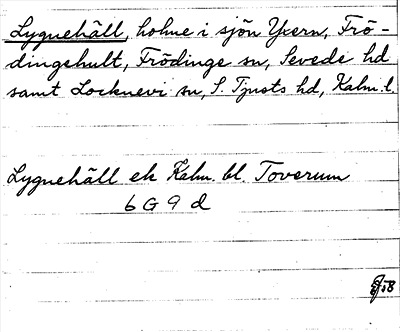 Lygnehäll, holme i sjön Yxern, Frö-
dingehult, Frödinge sn, Sevede hd
samt Locknevi sn, S. Tjusts hd, Kalm. l.
Lygnehäll ek Kalm. bl. Toverum
6 G 9 d
58